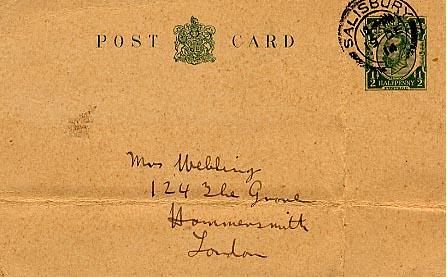 POST CARD
SALISBURY
1/2 HALFPENNY 1/2
Mrs Webling
124 The Grove
Hammersmith
London